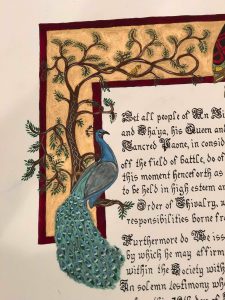 Let all people of An
and Tha'ya, his Queen and
Tancred Paone, in consid
off the field of battle, do of
this moment henceforth as
to be held in high esteem an
Order of Chivalry, w
responsibilities borne fr
Furthermore do We iss
by which he may affirm
within the Society with
In solemn testimony wh